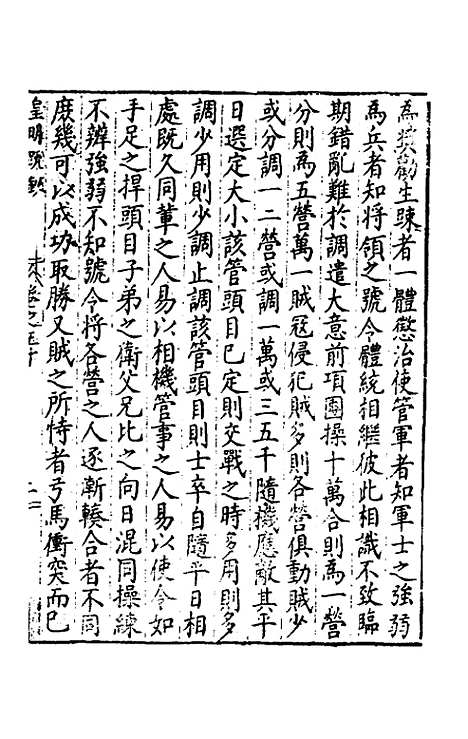 為奬勸生踈者一體懲治使管軍者知軍士之強弱
為兵者知將領之號令體統相繼彼此相識不致臨
期錯亂難於調遣大意前項團操十萬合則為一營
分則為五營萬一賊冦侵犯賊多則各營俱動賊少
或分調一二營或調一萬或三五千隨機應敵其平
日選定大小該管頭目已定則交戰之時多用則多
調少用則少調止調該管頭目則士卒自隨平日相
處既久同軰之人易以相機管事之人易以使令如
手足之捍頭目子弟之衛父兄比之向日混同操練
不辨強弱不知號令将各營之人逐漸輳合者不同
庻幾可以成功取勝又賊之所恃者弓馬衝突而已
皇明疏鈔 卷之五十